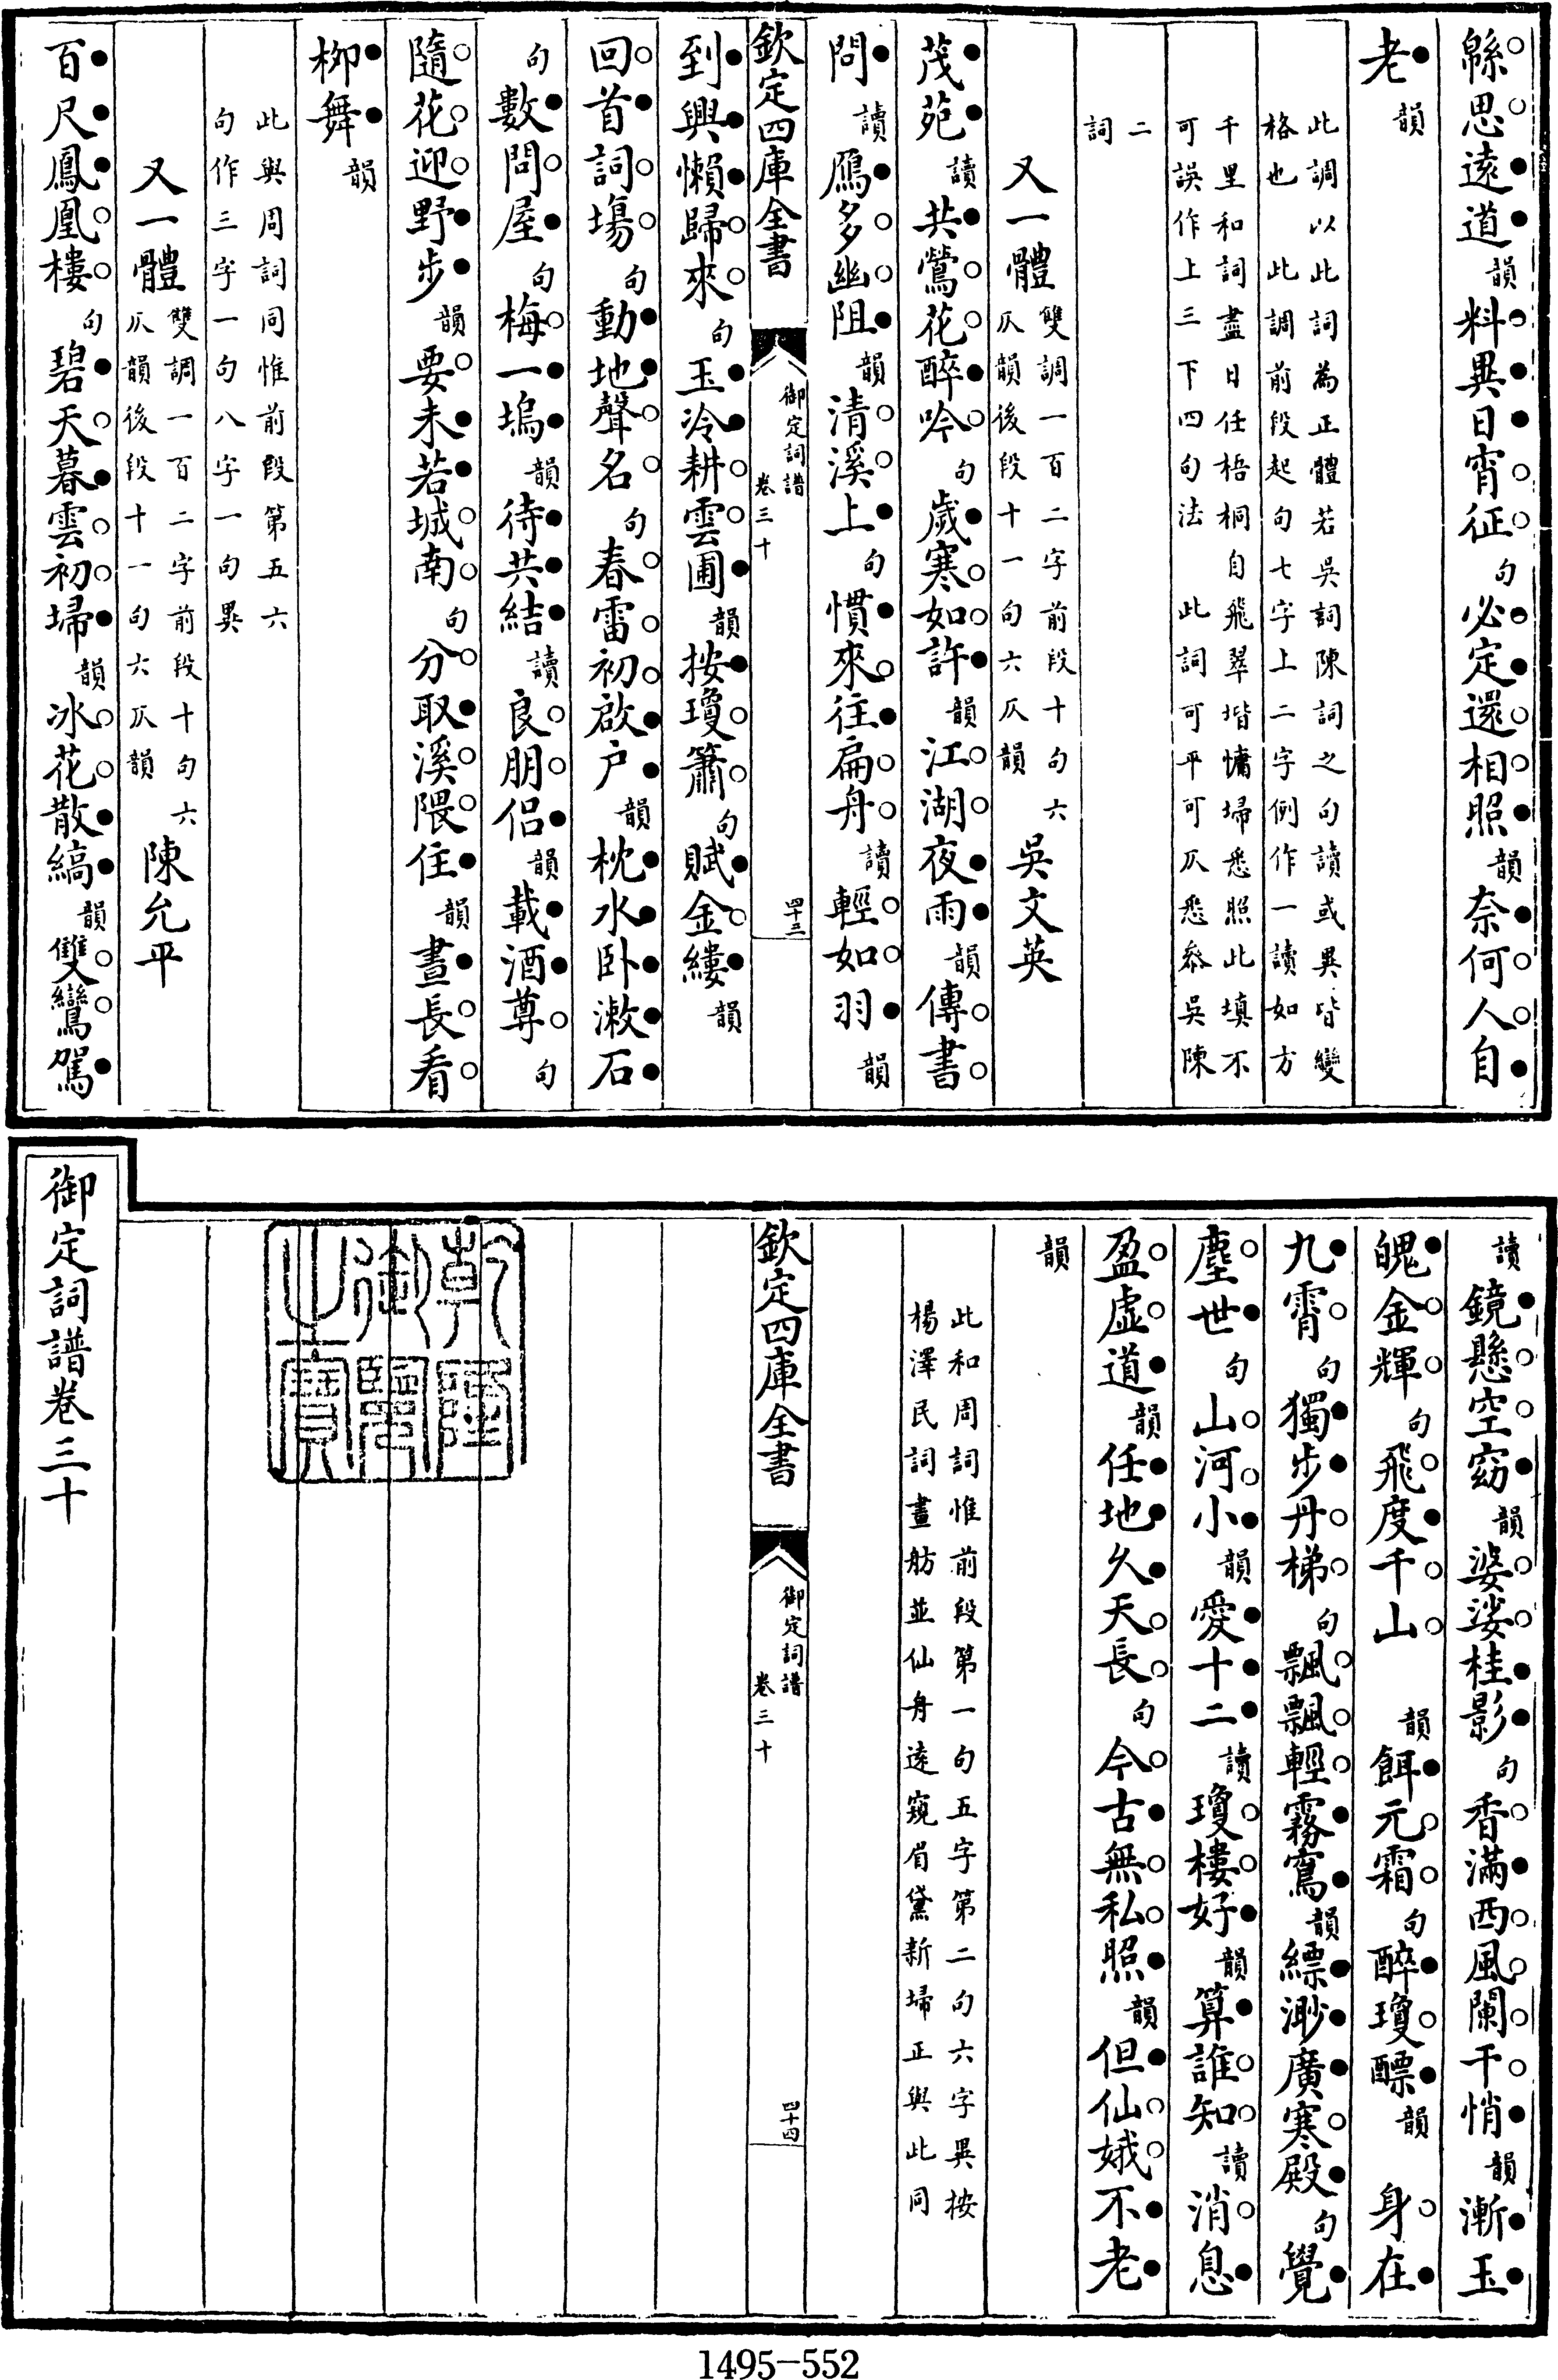 緜思遠道韻料異日宵征句必定還相照韻奈何人自
老韻
此調以此詞為正體若吳詞陳詞之句讀或異皆變
格也 此調前段起句七字上二字例作一讀如方
千里和詞盡日任梧桐自飛翠堦慵埽悉照此填不
可誤作上三下四句法 此詞可平可仄悉叅吳陳
二
詞
又一體雙調一百二字前段十句六
仄韻後段十一句六仄韻吳文英
茂苑讀共鶯花醉吟句歲寒如許韻江湖夜雨韻傳書
問讀鴈多幽阻韻清溪上句慣來往扁舟讀輕如羽韻
欽定四庫全書
御定詞譜
卷三十
四十三
到興懶歸來句玉冷耕雲圃韻按瓊簫句賦金縷韻
回首詞場句動地聲名句春雷初啟户韻枕水卧漱石
句數間屋句梅一塢韻待共結讀良朋侣韻載酒尊句
隨花迎野步韻要未若城南句分取溪隈住韻晝長看
栁舞韻
此與周詞同惟前段第五六
句作三字一句八字一句異
又一體雙調一百二字前段十句六
仄韻後段十一句六仄韻陳允平
百尺鳳凰樓句碧天暮雲初埽韻冰花散縞韻雙鸞駕
讀鏡懸空窈韻婆娑桂影句香滿西風闌干悄韻漸玉
魄金輝句飛度千山韻餌元霜句醉瓊醥韻 身在
九霄句獨步丹梯句飄飄輕霧窵韻縹渺廣寒殿句覺
塵世句山河小韻愛十二讀瓊樓好韻算誰知讀消息
盈虛道韻任地久天長句今古無私照韻但仙娥不老
韻
此和周詞惟前段第一句五字第二句六字異按
楊澤民詞畫舫並仙舟遠窺眉黛新埽正與此同
欽定四庫全書
御定詞譜
卷三十
四十四
乾隆
御覽
之寶
御定詞譜卷三十
1495-552